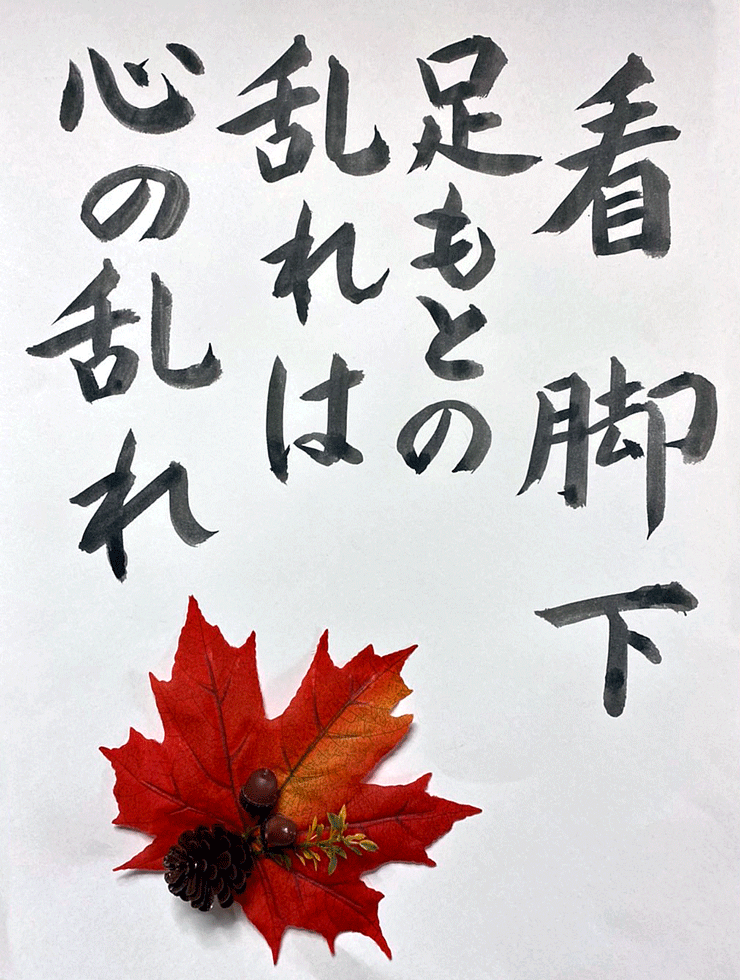 看脚下
足もとの
乱れは
心の乱れ